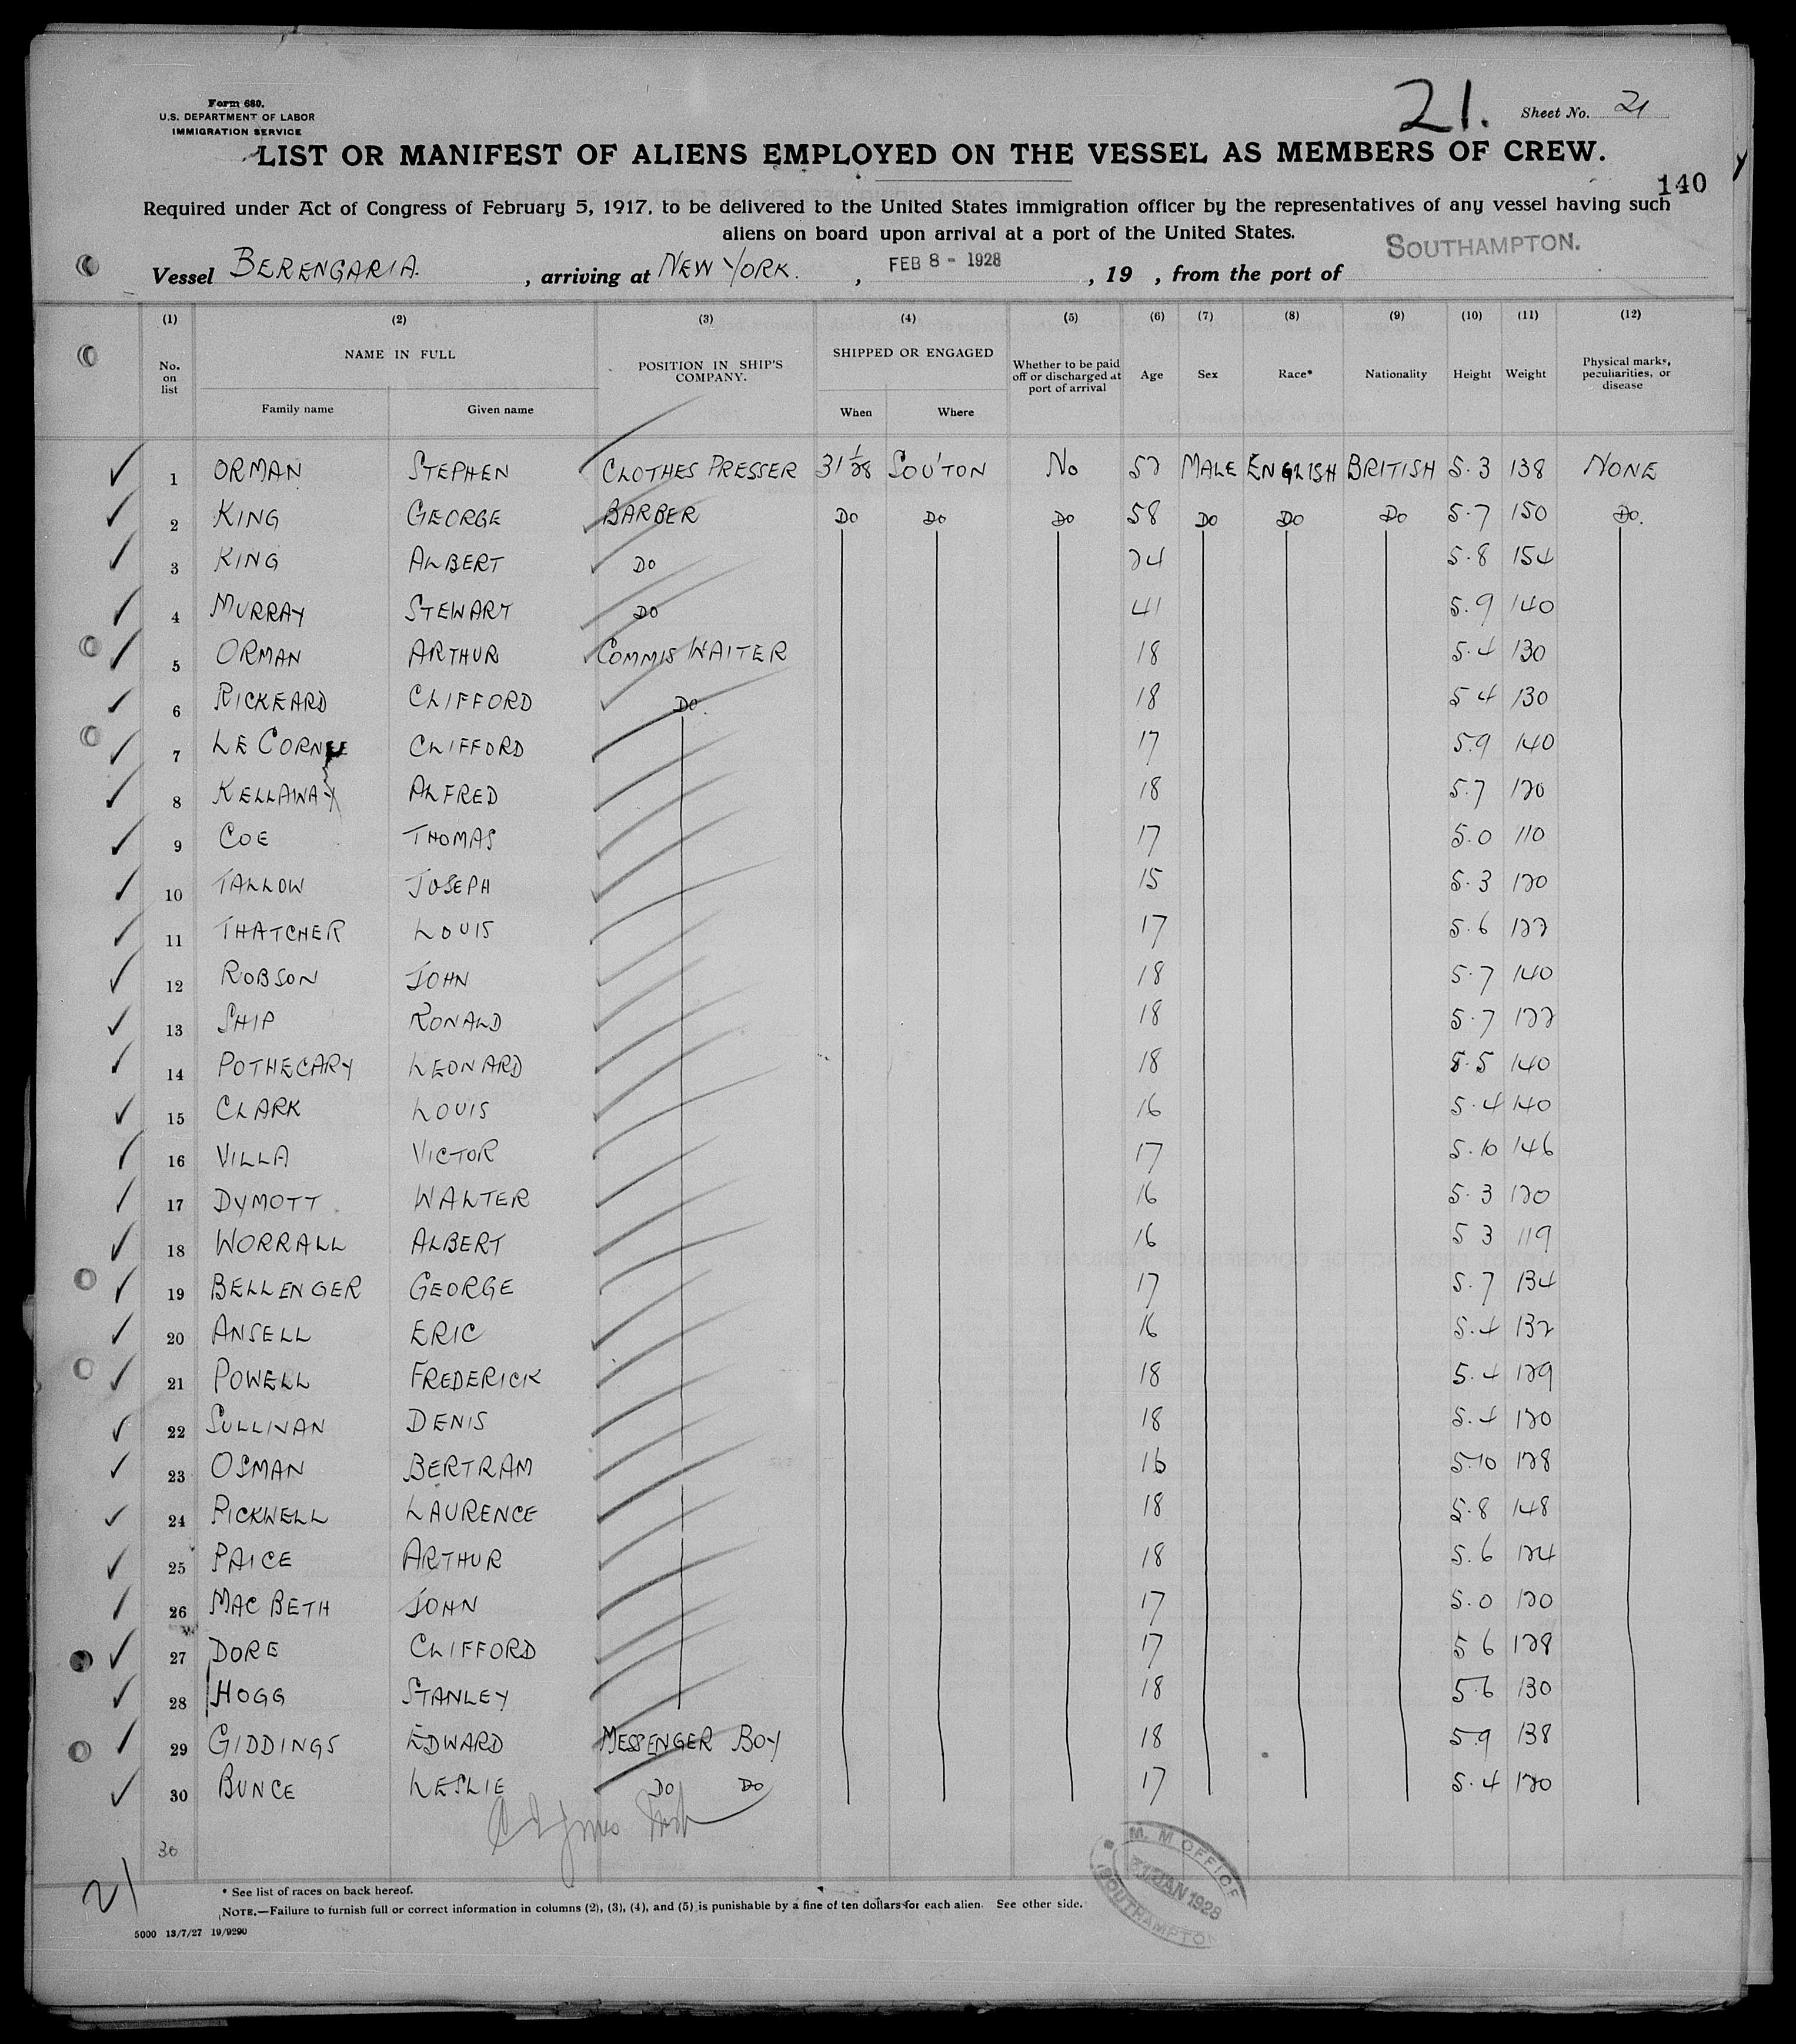 Form 680.
U.S. DEPARTMENT OF LABOR
IMMIGRATION SERVICE
21. Sheet No. 21
LIST OR MANIFEST OF ALIENS EMPLOYED ON THE VESSEL AS MEMBERS OF CREW.
140
Required under Act of Congress of February 5, 1917, to be delivered to the United States immigration officer by the representatives of any vessel having such
aliens on board upon arrival at a port of the United States.
Vessel BERENGARIA. , arriving at NEW YORK. , FEB 8 - 1928 , 19 , from the port of SOUTHAMPTON.
(1) (2) (3) (4) (5) (6) (7) (8) (9) (10) (11) (12)
No. on list NAME IN FULL Family name Given name POSITION IN SHIP'S COMPANY. SHIPPED OR ENGAGED When Where Whether to be paid off or discharged at port of arrival Age Sex Race* Nationality Height Weight Physical marks, peculiarities, or disease
1 ORMAN STEPHEN CLOTHES PRESSER 31 1/28 SOU'TON No 52 MALE ENGLISH BRITISH 5.3 138 NONE
2 KING GEORGE BARBER DO DO DO 58 DO DO DO 5.7 150 DO.
3 KING ALBERT DO 24 5.8 154
4 MURRAY STEWART DO 41 5.9 140
5 ORMAN ARTHUR COMMIS WAITER 18 5.4 130
6 RICKEARD CLIFFORD DO. 18 5 4 130
7 LE CORNEE CLIFFORD 17 5.9 140
8 KELLAWAY ALFRED 18 5.7 120
9 COE THOMAS 17 5.0 110
10 TALLOW JOSEPH 15 5.3 120
11 THATCHER LOUIS 17 5.6 122
12 ROBSON JOHN 18 5.7 140
13 SHIP RONALD 18 5.7 122
14 POTHECARY LEONARD 18 5.5 140
15 CLARK LOUIS 16 5.4 140
16 VILLA VICTOR 17 5.10 146
17 DYMOTT WALTER 16 5.3 120
18 WORRALL ALBERT 16 5 3 119
19 BELLENGER GEORGE 17 5.7 134
20 ANSELL ERIC 16 5.4 132
21 POWELL FREDERICK 18 5.4 129
22 SULLIVAN DENIS 18 5.4 120
23 OSMAN BERTRAM 16 5.10 128
24 PICKWELL LAURENCE 18 5.8 148
25 PAICE ARTHUR 18 5.6 124
26 MAC BETH JOHN 17 5.0 120
27 DORE CLIFFORD 17 5 6 128
28 HOGG STANLEY 18 5.6 130
29 GIDDINGS EDWARD MESSENGER BOY 18 5.9 138
30 BUNCE LESLIE DO DO 17 5.4 120
30
21
M. M OFFICE
31 JAN 1928
SOUTHAMPTON
* See list of races on back hereof.
NOTE.—Failure to furnish full or correct information in columns (2), (3), (4), and (5) is punishable by a fine of ten dollars for each alien. See other side.
5000 13/7/27 19/9290